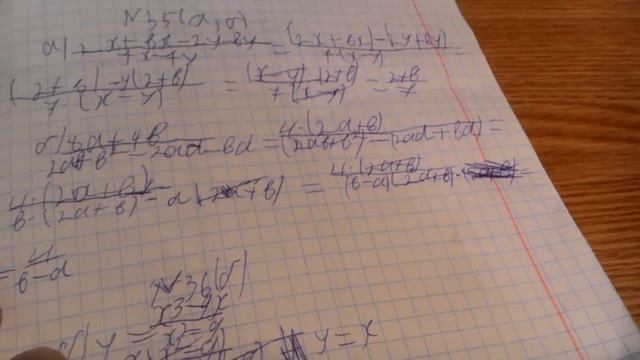 N 35 (а, б)
а) 2x + bx - 2y - by / 7x - 7y = (2x + bx) - (2y + by) / 7(x - y) =
(2 + b) - y(2 + b) / 7 · (x - y) = (x - y) (2 + b) / 7 (x - y) = 2 + b / 7
б) 8a + 4b / 2ab + b² - 2ad - bd = 4 · (2a + b) / (2ab + b²) - (2ad + bd) =
4 · (2a + b) / b · (2a + b) - d (2a + b) = 4 · (2a + b) / (b - d) (2a + b) =
= 4 / b - d
N 36 (б)
б) y = x³ - 9x / x² - 9 y = x